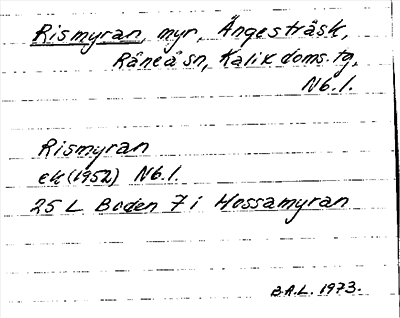 Rismyran, myr, Ängesträsk,
Råneå sn, Kalix doms.tg,
Nb.l.
Rismyran
ek (1952) Nb.l.
25 L Boden 7 i Hossamyran
B.A.L. 1973.